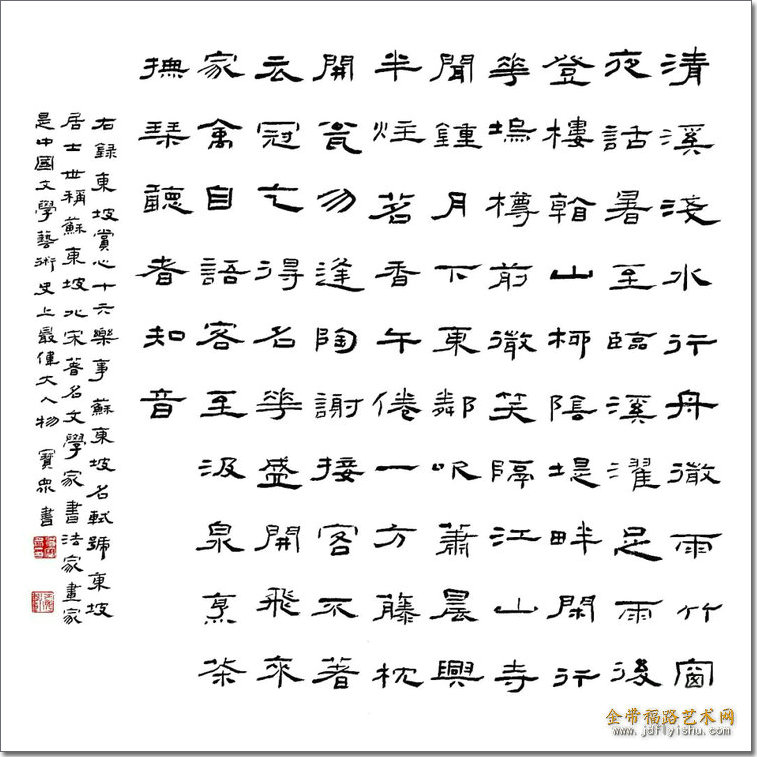 清溪淺水行舟微雨竹窗
夜話暑至臨溪濯足雨後
登樓看山柳陰堤畔閑行
華塢樽前微笑隔江山寺
聞鍾月下東鄰吹蕭晨興
半炷茗香午倦一方藤枕
開瓮勿逢陶謝接客不著
衣冠乞得名華盛開飛來
家禽自語客至汲泉烹茶
撫琴聽者知音
右錄東坡賞心十六樂事 蘇東坡名軾號東坡
居士世稱蘇東坡北宋著名文學家書法家畫家
是中國文學藝術史上最偉大人物 寶眾書
金带福路艺术网
www.jdflyishu.com